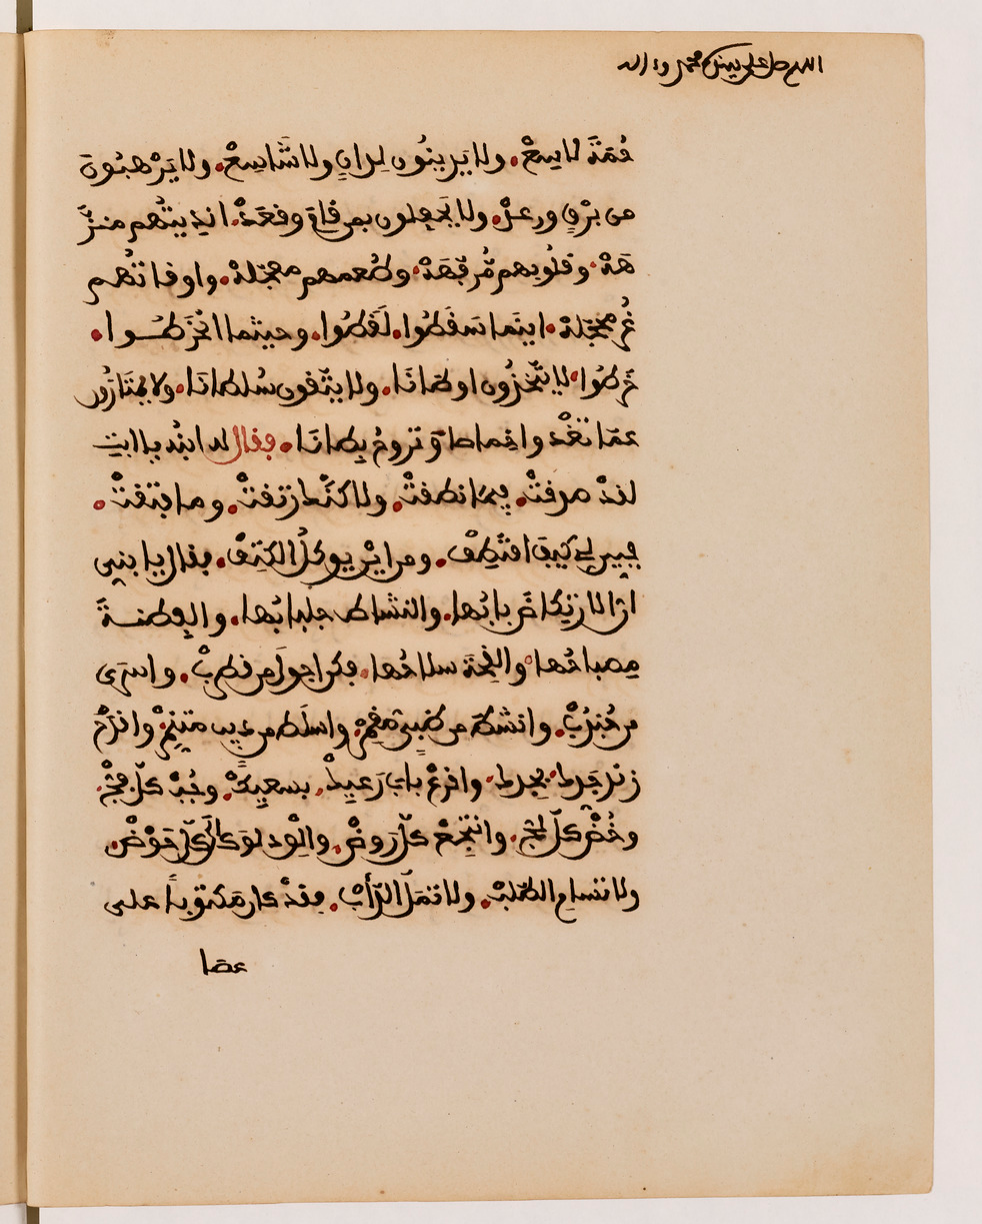 اللهم صل على سيدنا محمد وءاله
حُمَةَ لاسِعْ. ولا يَدِينُون لِدانٍ ولا شَاسِعْ. ولا يَرْهبُونَ
من برَقٍ ورعدْ. ولا يَحْفِلون بمن قَامَ وقعَدْ. انديتُهم منزَّ
هَةْ. وقلُوبهم مُّرفّهَةْ. وطُعمهم معجّلةْ. واوقاتُهم
غُر محجّلةْ. اينما سَقَطُوا. لَقَطُوا. وحيثما انْخَرَطُوا.
خَرطُوا. لا يتّخِذُون اوطَانَا. ولا يتّقون سُلطانَا. ولا يمْتَازُون
عمّا تَغْدوا خماصا وَتروحُ بِطانَا. فقال له ابنُه يا ابتِ
لقدْ صدقتْ. فِيمَا نطقتْ. ولاكنَّك رَتقتْ. وما فتقتْ.
فبين لي كيفَ اقْتَطِفْ. ومن ايْن يوكلُ الكَتِفْ. فقال يا بنيِ
ان الارتكاضَ بابُها. والنشَاط جلبابُها. والفِطنة
مِصباحُها. والقِحَة سلاحُها. فكن اجولَ من قطربْ. واسرى
من جُندُبْ. وانشطَ من ظبيٍ مُقمِرْ. واسلَط من ذيبٍ متنمِّرْ. واقدَحْ
زند جَدك. بِجدك. واقرعْ باب رَعيِكْ. بسعيِكْ. وجُبْ كلّ فجّ.
وخُضْ كلّ لجّ. وانتَجِعْ كلّ روضْ. والْقِ دلوَك الى كلّ حَوْضْ.
ولا تسامِ الطّلبْ. ولا تمَلّ الدّأبْ. فقدْ كان مَكتوباً على
عصا